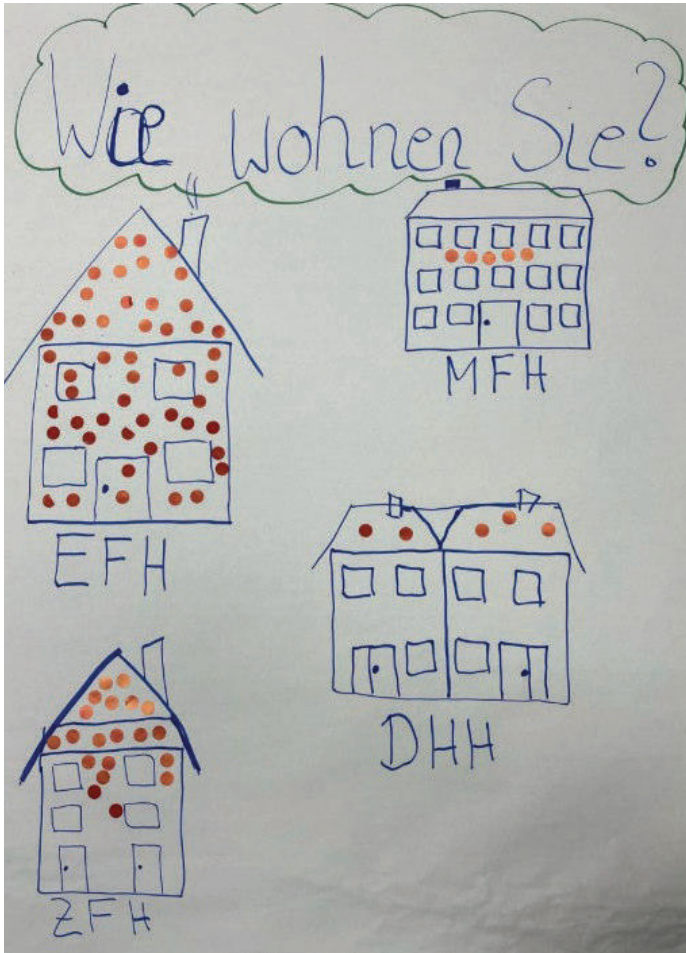 Wie wohnen Sie?
MFH
EFH
DHH
ZFH